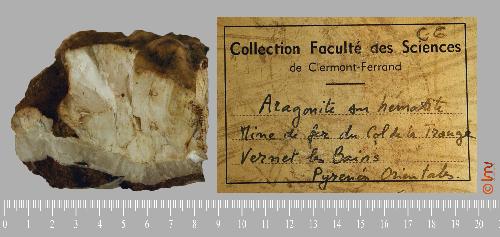 CE
Collection Faculté des Sciences
de Clermont-Ferrand
Aragonite sur hematite
Mine de fer du Col de la
Vernet les Bains
Pyrenées Orientales.
0 1 2 3 4 5 6 7 8 9 10 11 12 13 14 15 16 17 18 19 20
© lmv